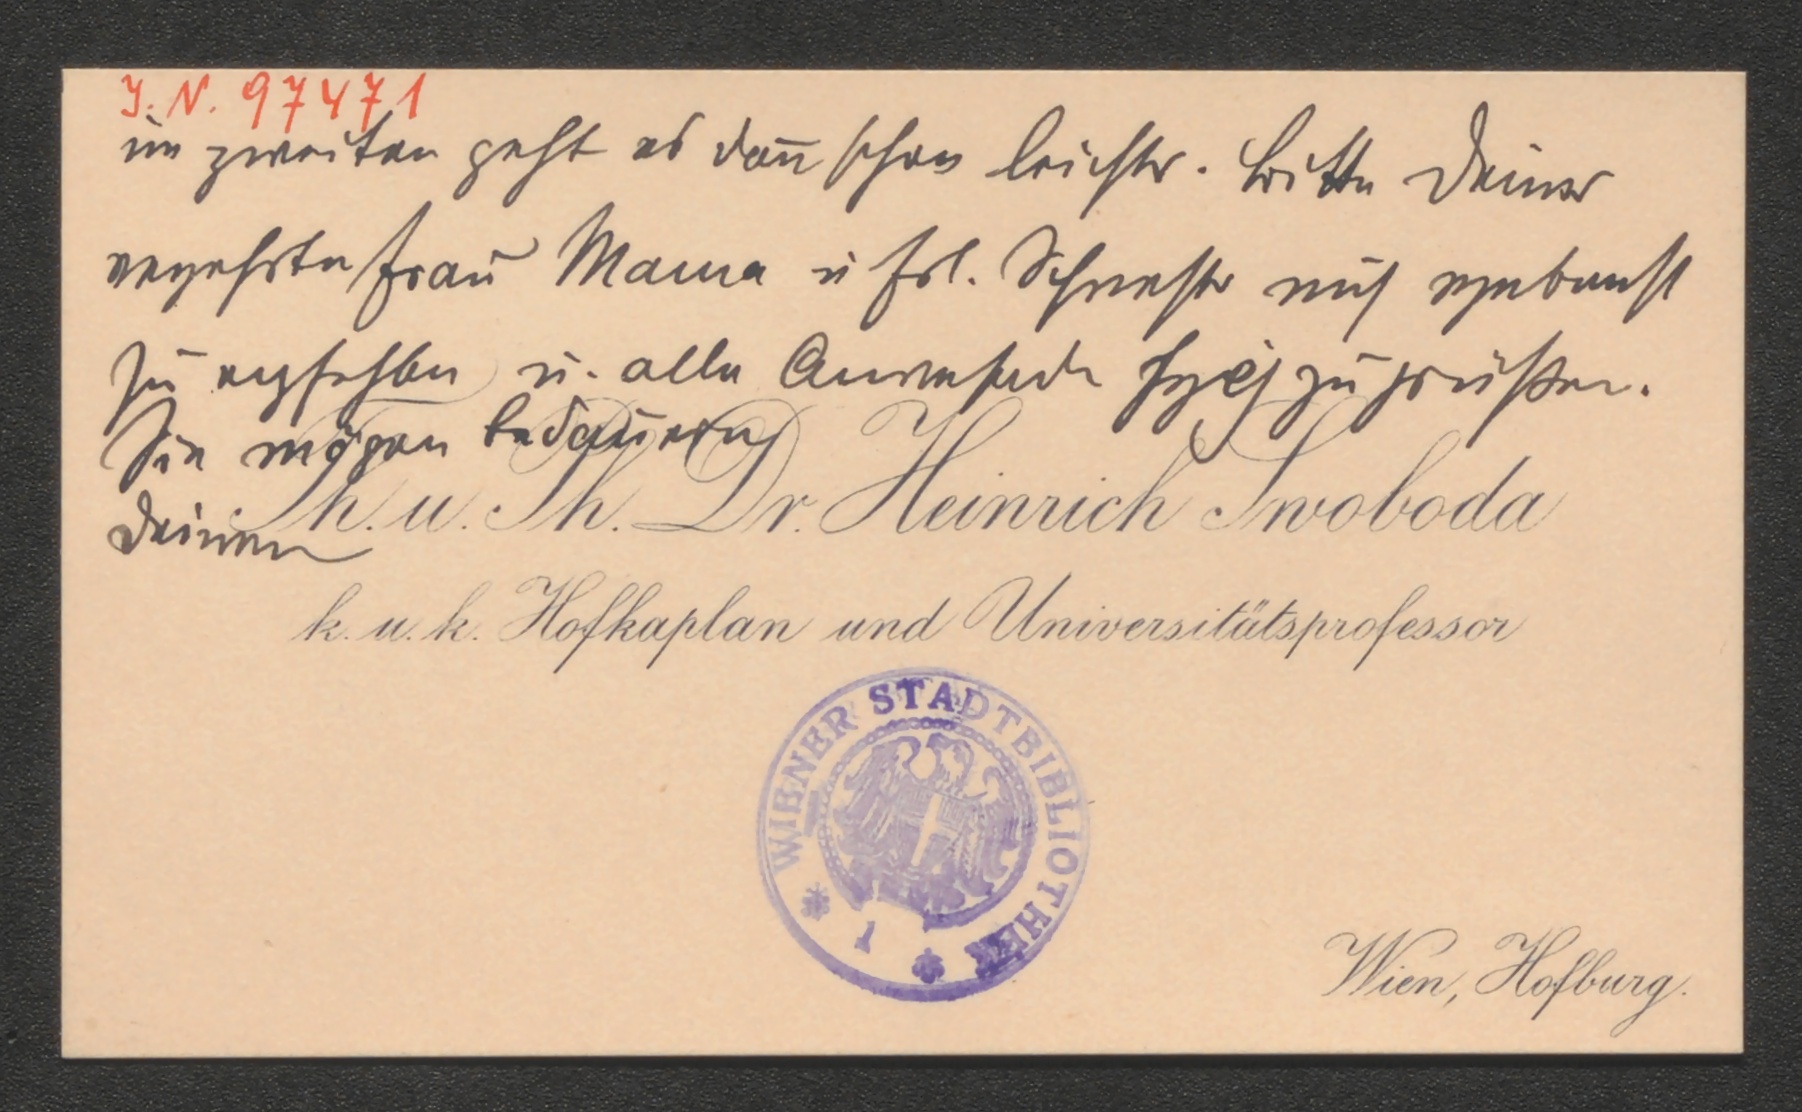 I. N. 97471
im zweiten geht es dan̄ schon leichter. Bitte Deiner
verehrten Frau Mama u Frl. Schwester mich ergebenst
zu empfehlen u. alle Anwesende herzl zu grüßen.
Sie mögen bedauern
Deinen
Ph. u. Th. Dr. Heinrich Swoboda
k. u. k. Hofkaplan und Universitätsprofessor
WIENER STADTBIBLIOTHEK
1
Wien, Hofburg.